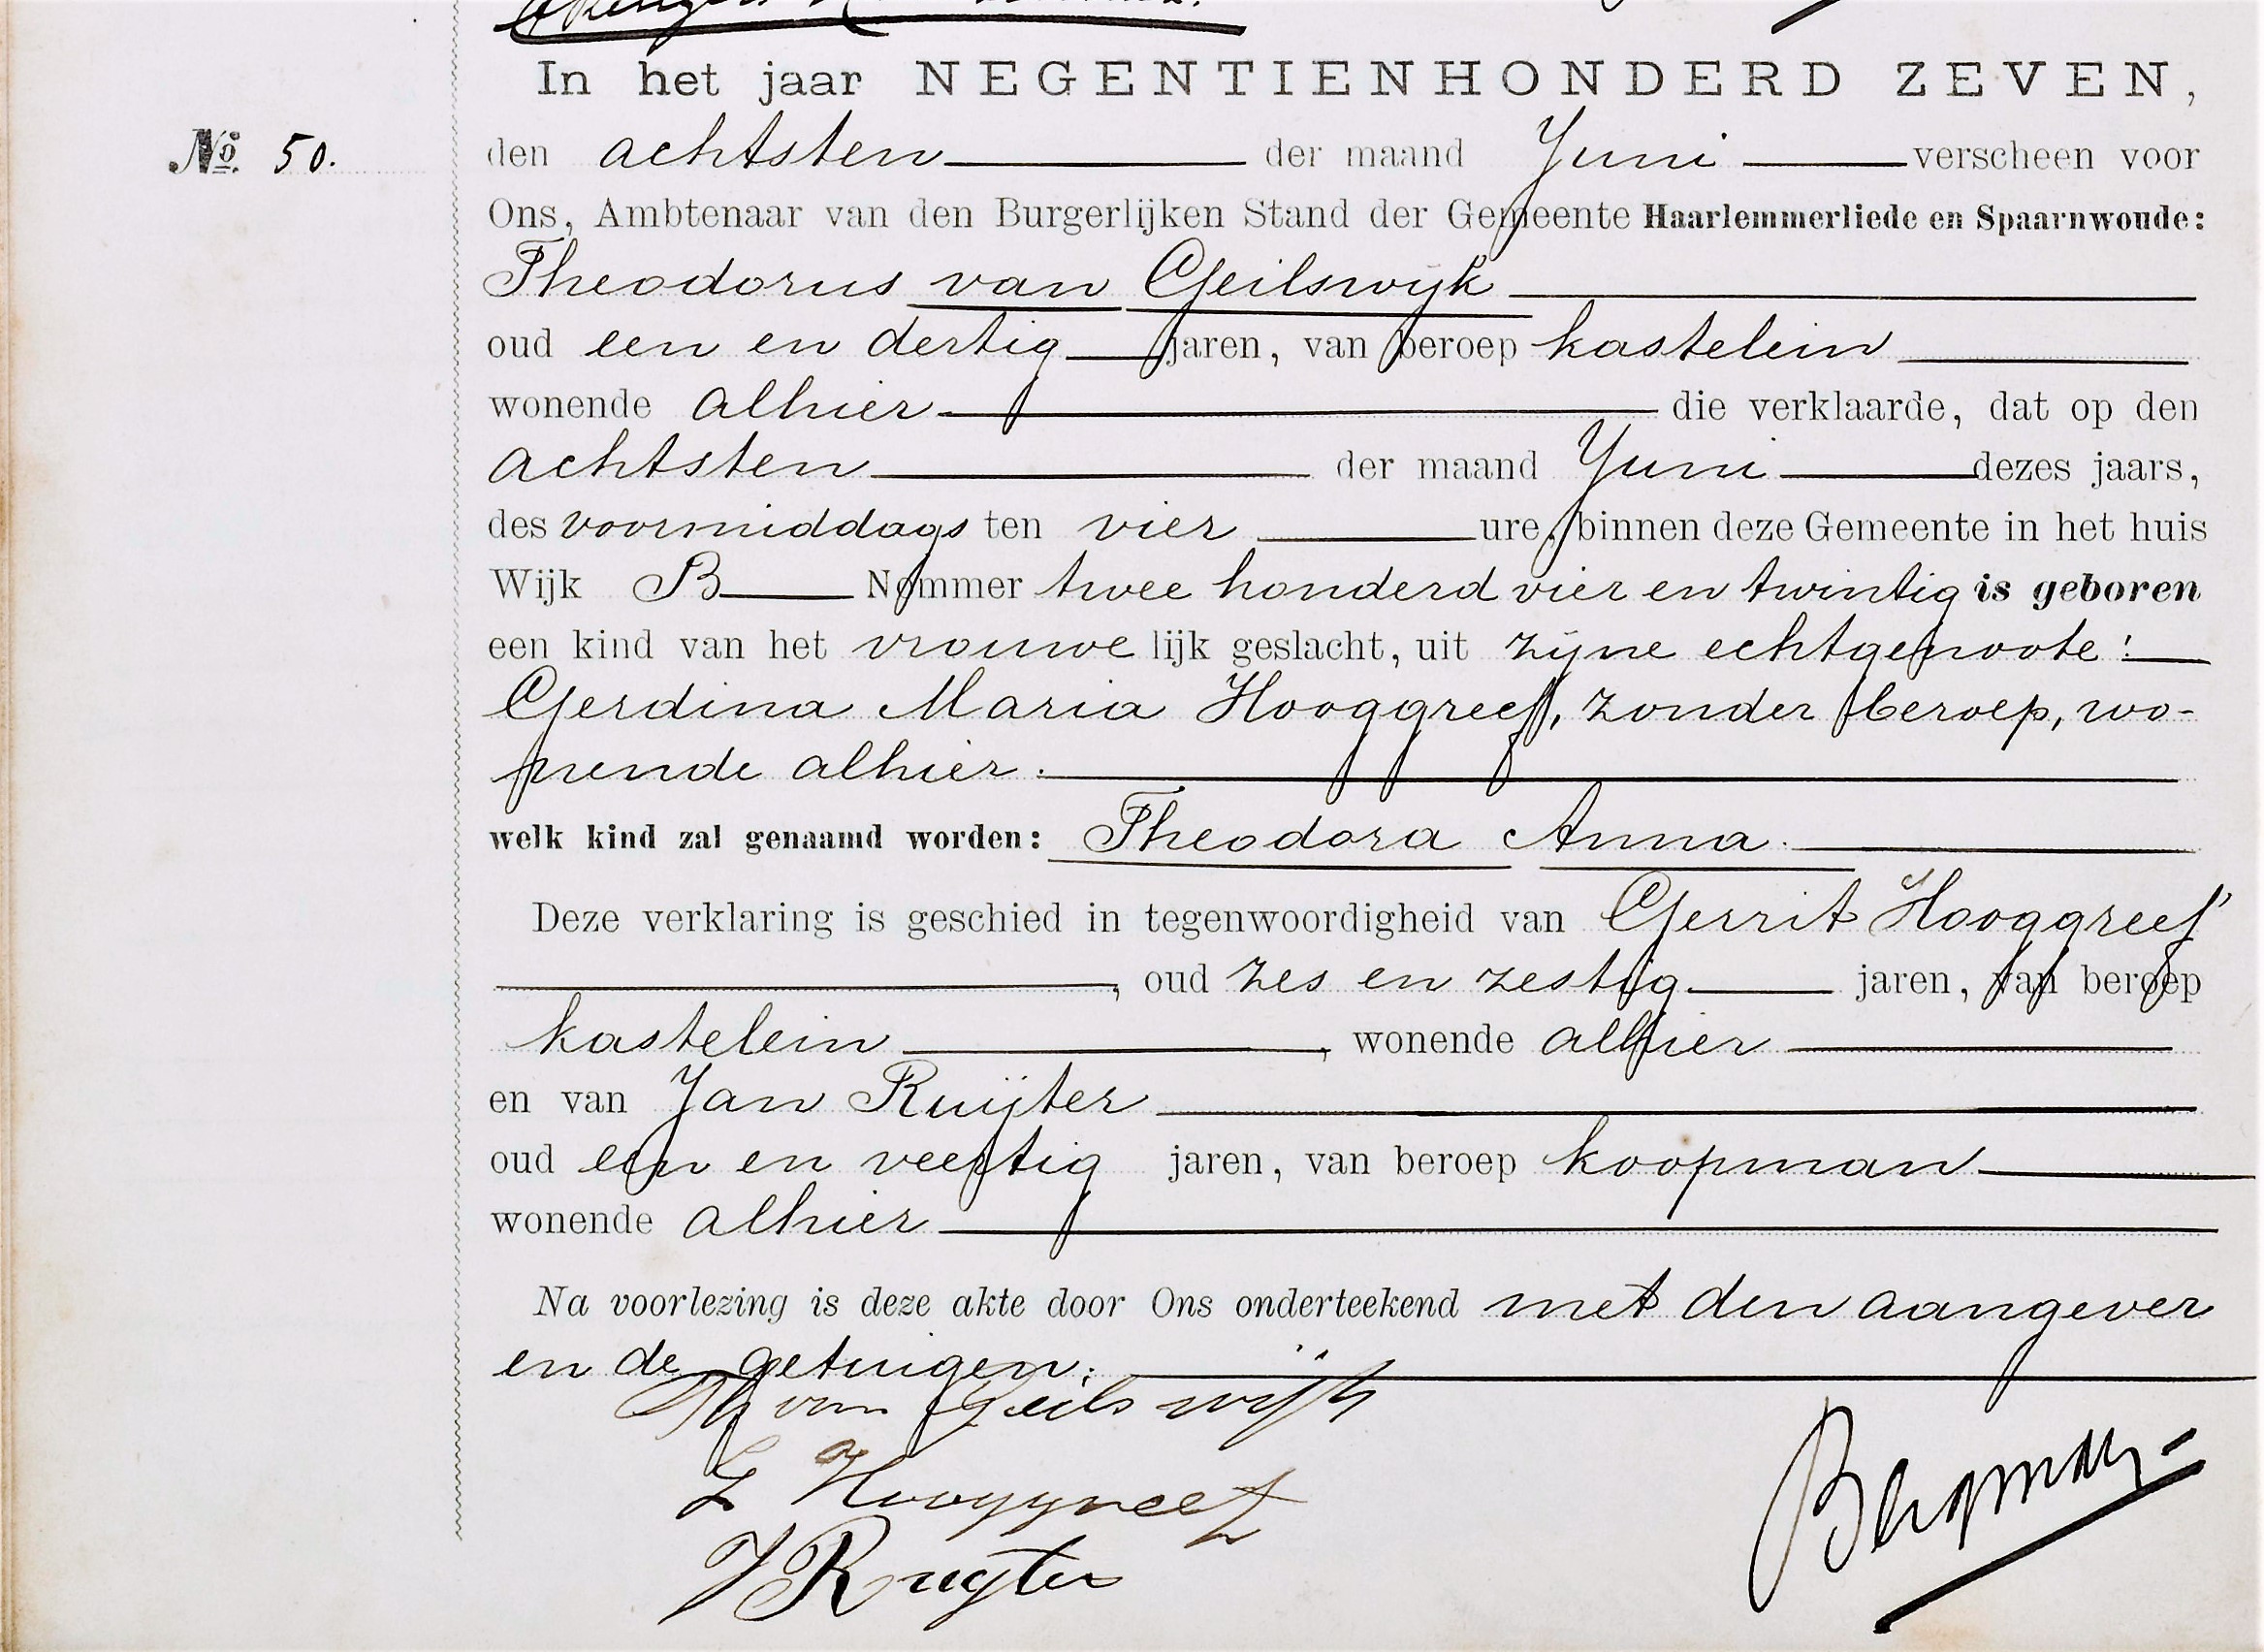 In het jaar NEGENTIENHONDERD ZEVEN,
No. 50.
den achtsten der maand Juni verscheen voor
Ons, Ambtenaar van den Burgerlijken Stand der Gemeente Haarlemmerliede en Spaarnwoude:
Theodorus van Geilswijk
oud een en dertig jaren, van beroep kastelein
wonende alhier die verklaarde, dat op den
achtsten der maand Juni dezes jaars,
des voormiddags ten vier ure, binnen deze Gemeente in het huis
Wijk B Nommer twee honderd vier en twintig is geboren
een kind van het vrouwelijk geslacht, uit zijne echtgenoote:
Gerdina Maria Hooggreef, zonder beroep, wo-
nende alhier.
welk kind zal genaamd worden: Theodora Anna.
Deze verklaring is geschied in tegenwoordigheid van Gerrit Hooggreef
, oud zes en zestig jaren, van beroep
kastelein, wonende alhier
en van Jan Ruijter
oud een en veertig jaren, van beroep koopman
wonende alhier
Na voorlezing is deze akte door Ons onderteekend met den aangever
en de getuigen.
Th van Geilswijk
G Hooggreef
J Ruyter
Bergman